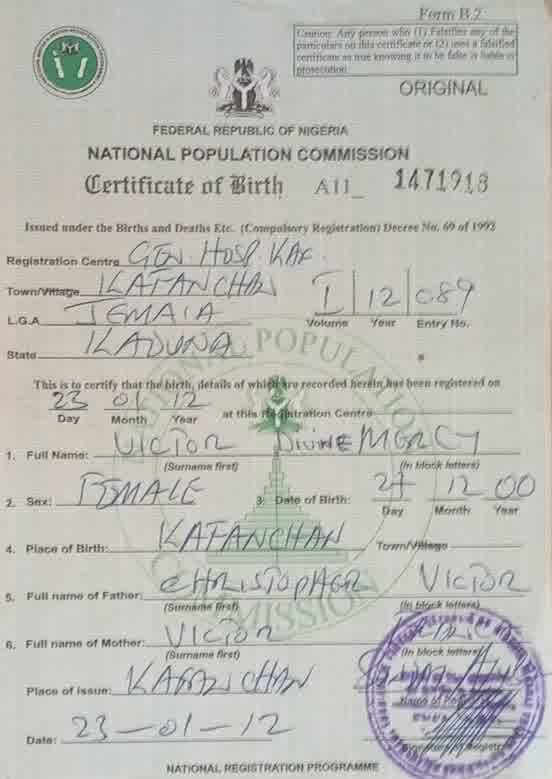 Form B.2
Caution: Any person who (1) Falsifies any of the
particulars on this certificate or (2) uses a falsified
certificate as true knowing it to be false is liable to
prosecution
ORIGINAL
FEDERAL REPUBLIC OF NIGERIA
NATIONAL POPULATION COMMISSION
Certificate of Birth A11_ 1471918
Issued under the Births and Deaths Etc. (Compulsory Registration) Decree No. 69 of 1992
Registration Centre GEN HOSP KAF
Town/Village KAFANCHAN
I 12 089
L.G.A JEMA'A
Volume Year Entry No.
State KADUNA
NATIONAL POPULATION COMMISSION
This is to certify that the birth, details of which are recorded herein has been registered on
23 01 12 at this Registration Centre
Day Month Year
1. Full Name: VICTOR DIVINE MERCY
(Surname first) (In block letters)
2. Sex: FEMALE 3. Date of Birth: 27 12 00
Day Month Year
4. Place of Birth: KAFANCHAN Town/Village
5. Full name of Father: CHRISTOPHER VICTOR
(Surname first) (In block letters)
6. Full name of Mother: VICTOR
(Surname first) (In block letters)
Place of issue: KAFANCHAN
Name of
Date: 23-01-12
Signature of Registrar
NATIONAL REGISTRATION PROGRAMME